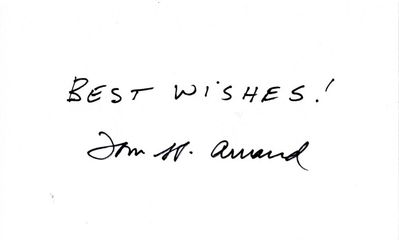 BEST WISHES!
Tom St. Amand